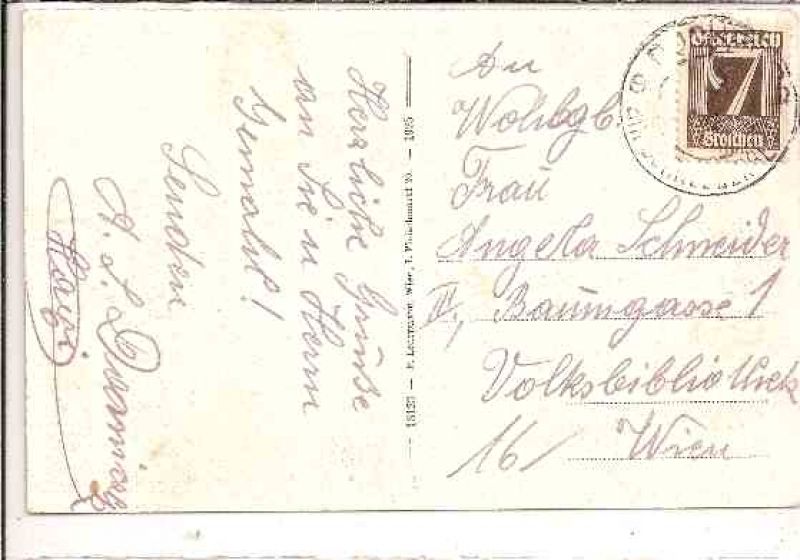 Herzliche Grüße
an Sie u Herrn
Gemahl!
Senden
A. L.
18127 – P. Ledermann, Wien, I. Fleischmarkt 20. – 1925
An
Wohlgb.
Frau
Angela Schneider
III, Baumgasse 1
Volksbibliothek
16/ Wien
Österreich
7
Groschen